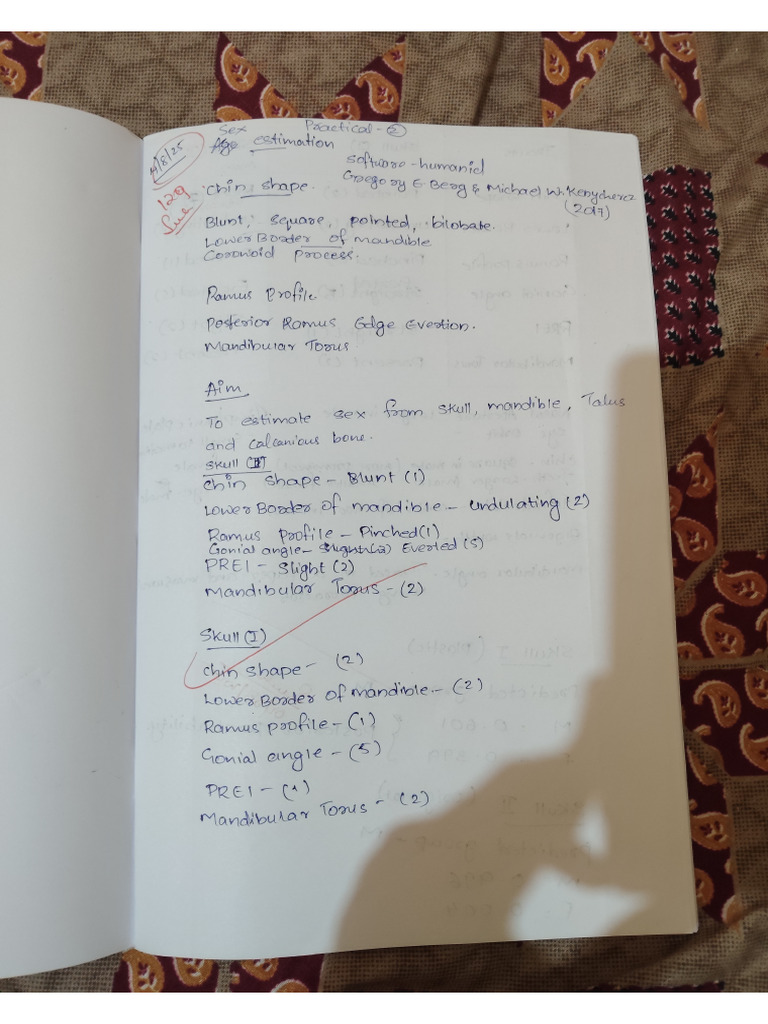 Practical - 2
Sex
Age estimation
4/8/25
software - humanid
Gregory E Berg & Michael W. Kenyherez
(2017)
129
Chin shape.
Blunt, Square, pointed, bilobate.
Lower Border of mandible
Coronoid process.
Ramus Profile
Posterior Ramus Edge Evertion.
Mandibular Torus
Aim
To estimate sex from skull, mandible, Talus
and calcanious bone.
Skull (II)
Chin shape - Blunt (1)
Lower Border of mandible - undulating (2)
Ramus profile - Pinched (1)
Gonial angle - Slight (2) Everted (5)
PREI - Slight (2)
Mandibular Torus - (2)
Skull (I)
Chin shape - (2)
Lower Border of mandible - (2)
Ramus profile - (1)
Gonial angle - (5)
PREI - (1)
Mandibular Torus - (2)